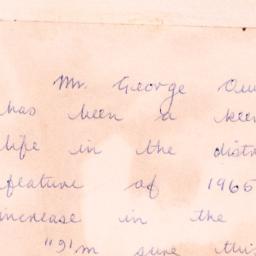 Mr. George
has been a keen
life in the
feature of 1965
increase in the
"I'm sure this